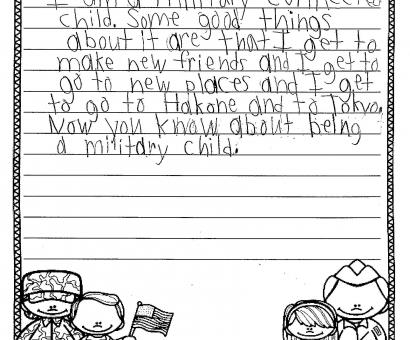 I am a military connected
child. Some good things
about it are that I get to
make new friends and I get to
go to new places and I get
to go to Hakone and to Tokyo.
Now you know about being
a military child.